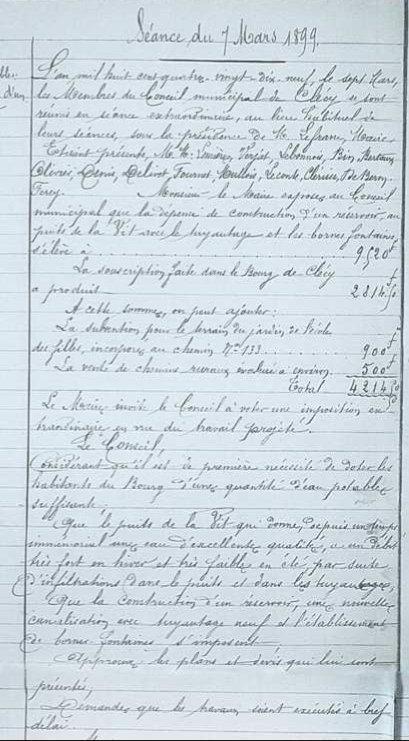 Séance du 7 Mars 1899.
L'an mil huit cent quatre-vingt-dix-neuf, le sept Mars,
les Membres du Conseil municipal de Clécy se sont
réunis en séance extraordinaire, au lieu habituel de
leurs séances, sous la présidence de M. Lefranc, Maire.
Etaient présents, M. M. Verjat, Lebonnois, Bin,
Olivier, Denis, Delivet, Fournet, Lecomte, De Berny
Percy. Monsieur le Maire expose au Conseil
municipal que la dépense de construction d'un réservoir, au
puits de la Vit avec le tuyautage et les bornes fontaines,
s'élève à 9520f
La souscription faite dans le Bourg de Clécy
a produit 2814f50
A cette somme, on peut ajouter:
La subvention pour le terrain du jardin de l'école
des filles, incorporé au chemin No 133 900f
La vente de chemins ruraux évaluée à environ 500f
Total 4214f50
Le Maire invite le Conseil à voter une imposition ex-
traordinaire en vue du travail projeté.
Le Conseil,
Considérant qu'il est de première nécessité de doter les
habitants du Bourg d'une quantité d'eau potable
suffisante.
Que le puits de la Vit qui donne depuis un temps
immémorial une eau d'excellente qualité, a un débit
très fort en hiver et très faible en été, par suite
d'infiltrations dans le puits et dans les tuyautages,
Que la construction d'un réservoir, une nouvelle
canalisation avec tuyautage neuf et l'établissement
de bornes fontaines s'imposent
Approuve les plans et devis qui lui sont
présentés,
Demande que les travaux soient exécutés à bref
délai.